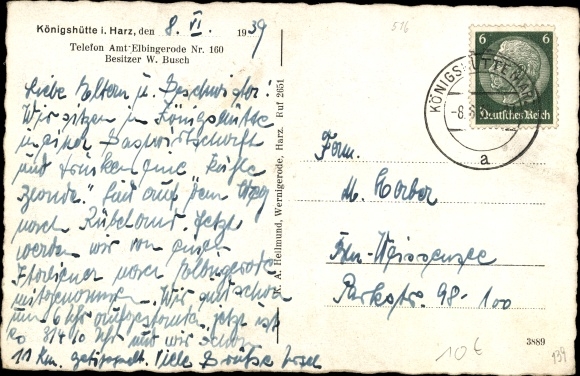 Königshütte i. Harz, den 8. VI. 1939
Telefon Amt-Elbingerode Nr. 160
Besitzer W. Busch
Liebe Eltern u. Geschwister!
Wir sitzen in Königshütte
in einer Gastwirtschaft
und trinken eine "kühle
Blonde." Sind auf dem Weg
nach Rübeland. Jetzt
werden wir von einem
nach Elbingerode
mitgenommen. Wir sind schon
um 6 Uhr aufgestanden, jetzt ist
10 Uhr und wir schon
11 Km. Viele Grüße
K. A. Hellmund, Wernigerode, Harz. Ruf 2651
516
6 6
Deutsches Reich
KÖNIGSHÜTTE
-8.6.
a
Fam.
M. Korber
Bln-Weissensee
Parkstr. 98-100
3889
10€
939